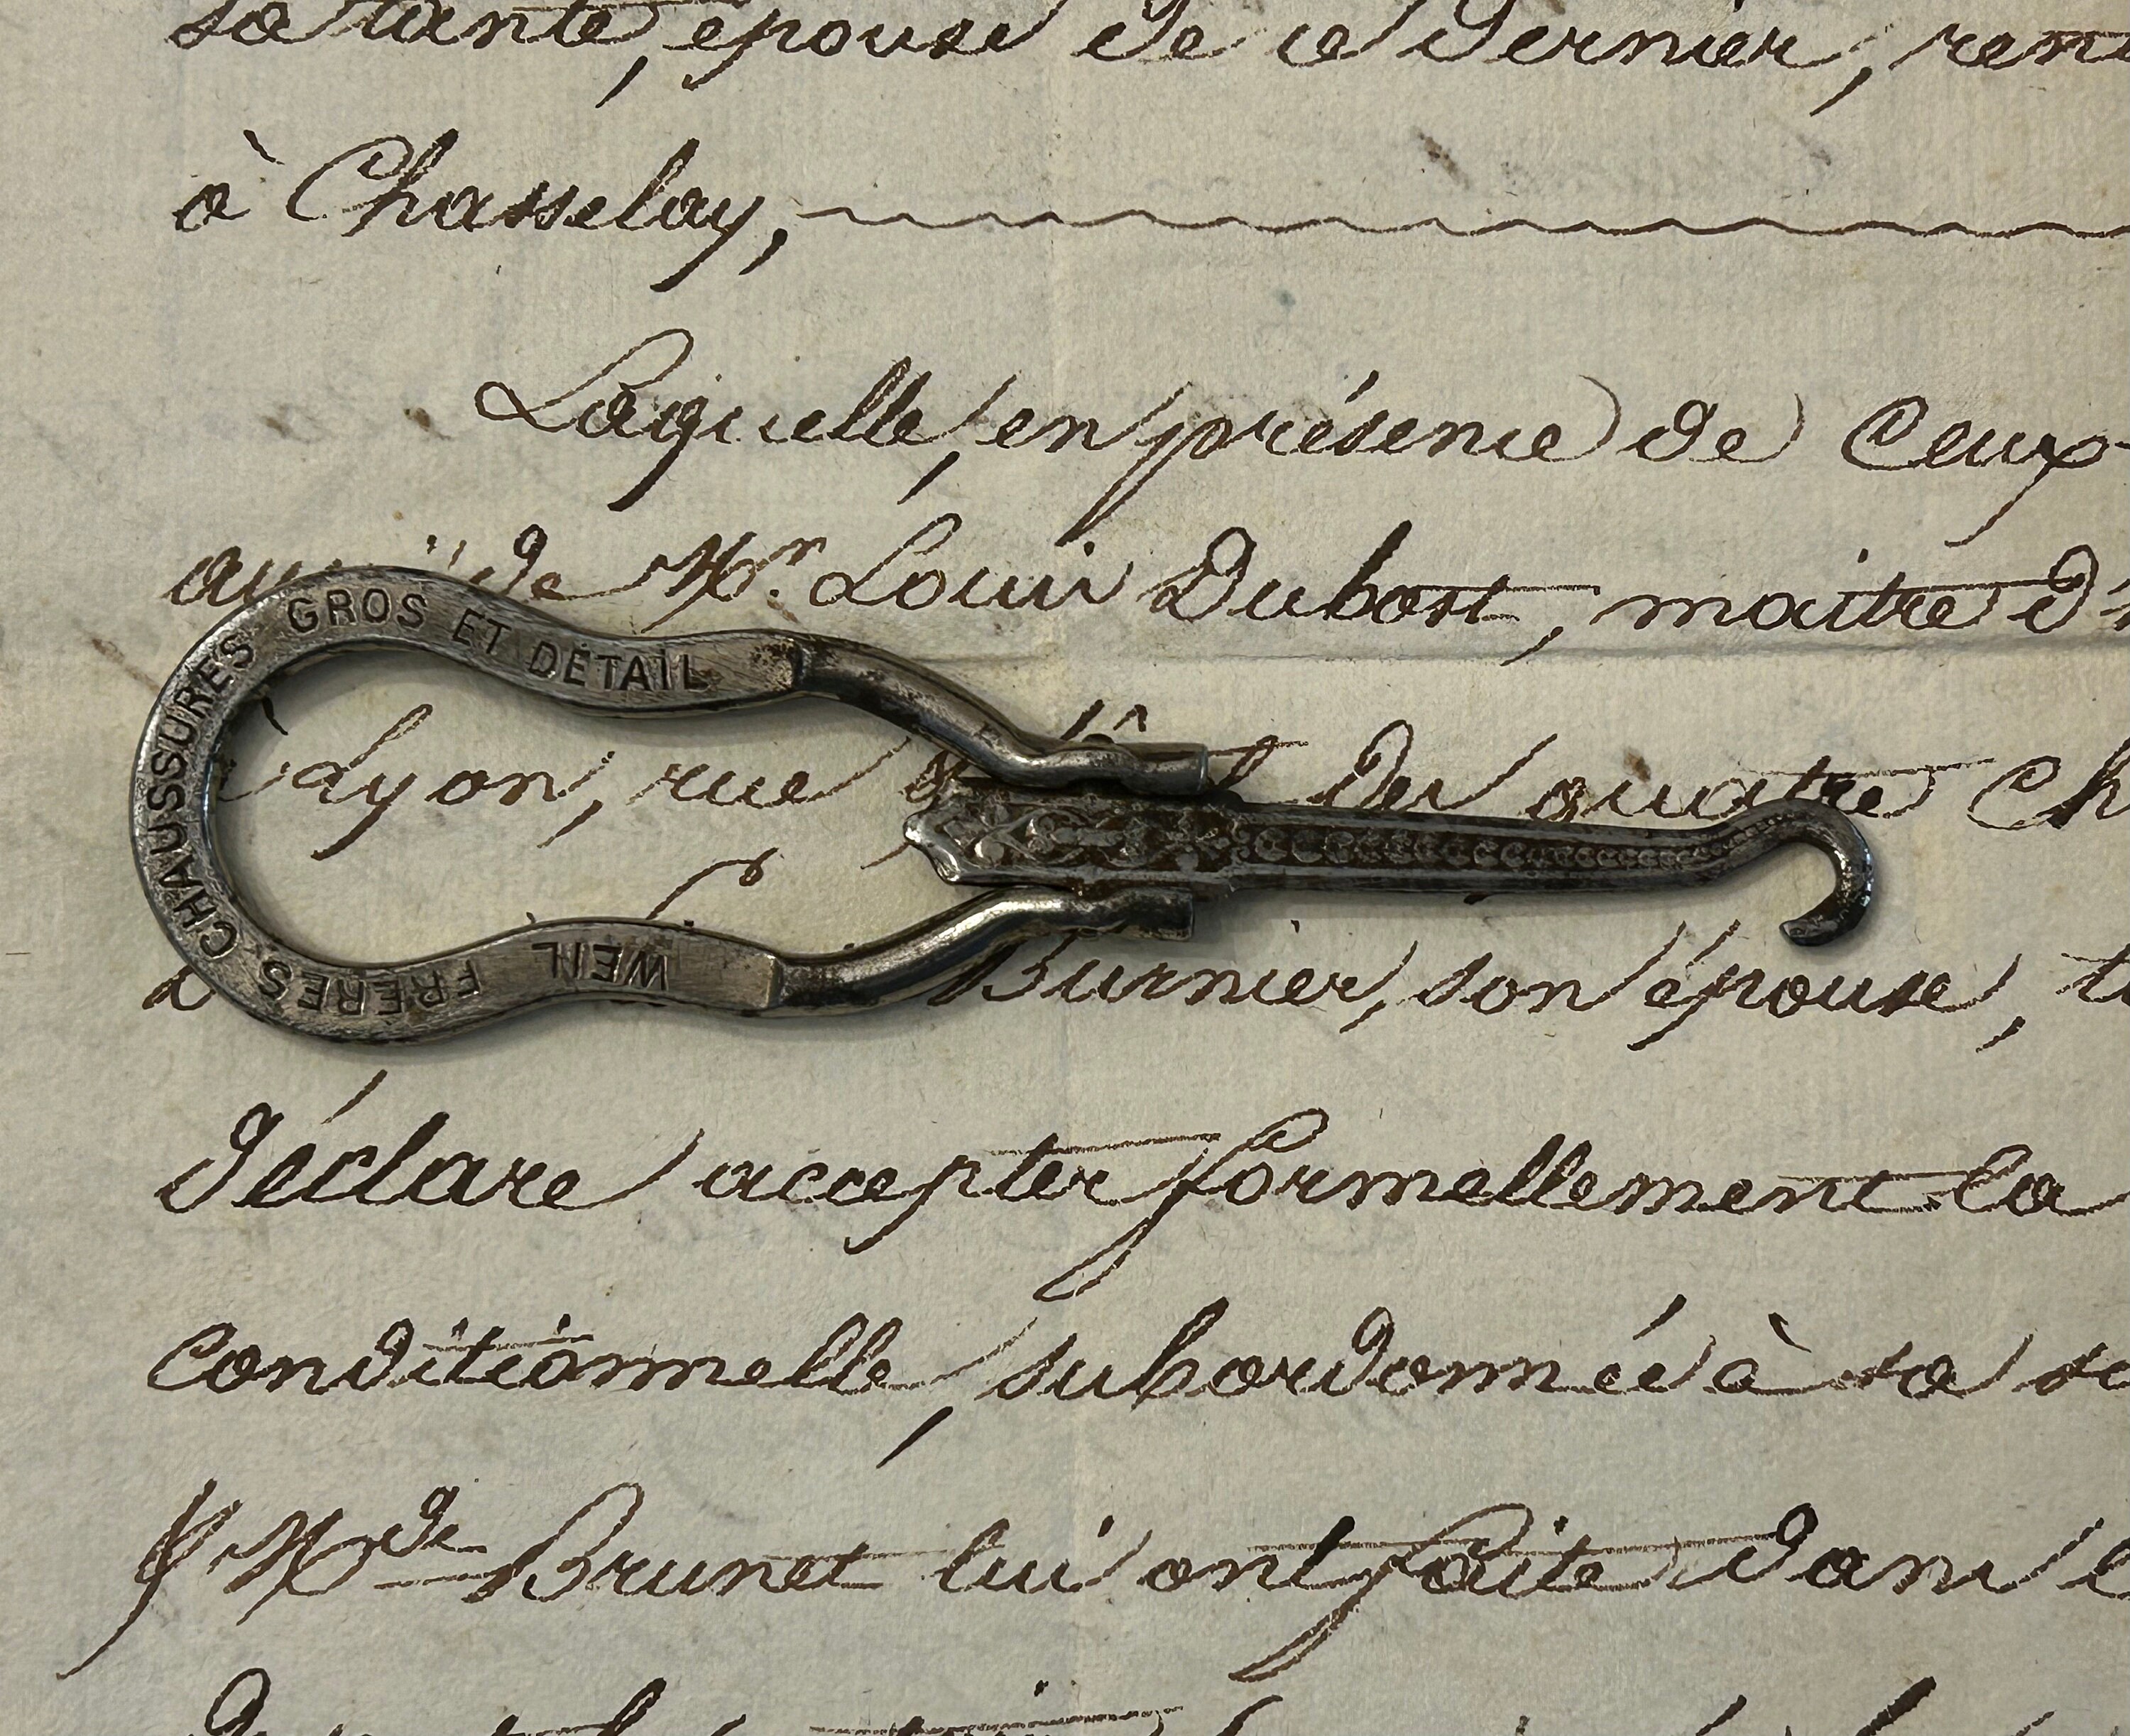 sa tante, épouse de ce dernier, ren
à Chasselay,
Laquelle, en présence de Ceux-
de Mr. Louis Dubost, maître d'
à Lyon, rue des quatre Ch
Burnier, son épouse,
déclare accepter formellement la
conditionnelle, subordonnée à sa
Mde Brunet lui ont faite dans
WEIL FRERES CHAUSSURES GROS ET DETAIL